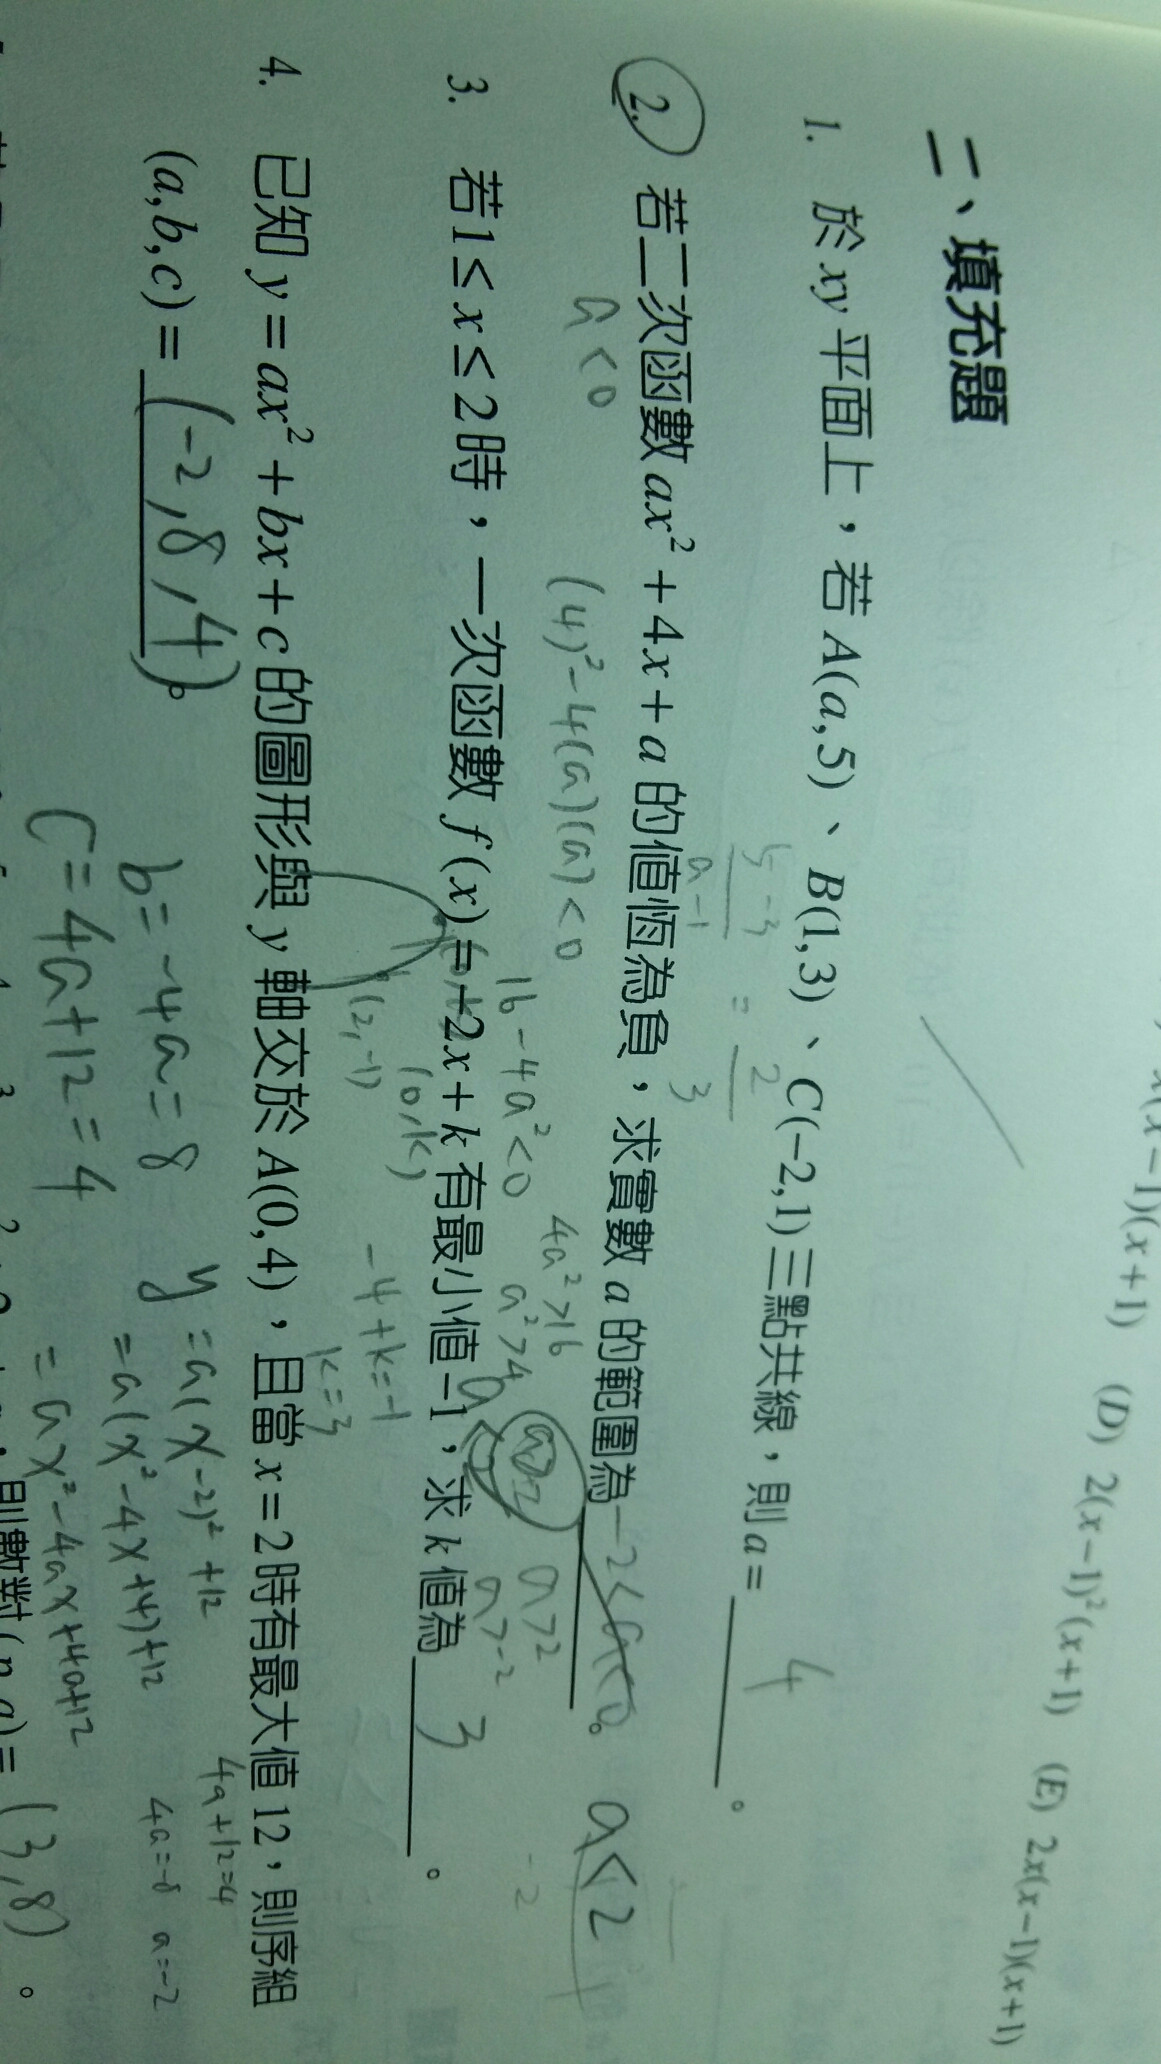 (x-1)(x+1) (D) 2(x-1)²(x+1) (E) 2x(x-1)(x+1)
二、填充題
1. 於 xy 平面上，若 A(a,5)、B(1,3)、C(-2,1)三點共線，則 a = 4 。
5-3
a-1
= 2
3
2. 若二次函數 ax² + 4x + a 的值恆為負，求實數 a 的範圍為 -2<a<0。 a<2
a<0
(4)²-4(a)(a)<0
16-4a²<0
4a²>16
a²>4
a>2
a>-2
-2
3. 若 1 ≤ x ≤ 2 時，一次函數 f(x) = -2x + k 有最小值 -1，求 k 值為 3 。
(2,-1)
(0,k)
-4+k=-1
k=3
4. 已知 y = ax² + bx + c 的圖形與 y 軸交於 A(0,4)，且當 x = 2 時有最大值 12，則序組
(a,b,c) = (-2,8,4)。
y = a(x-2)²+12
= a(x²-4x+4)+12
= ax²-4ax+4a+12
4a+12=4
4a=-8 a=-2
b=-4a=8
c=4a+12=4
則數對(p,q) = (3,8) 。